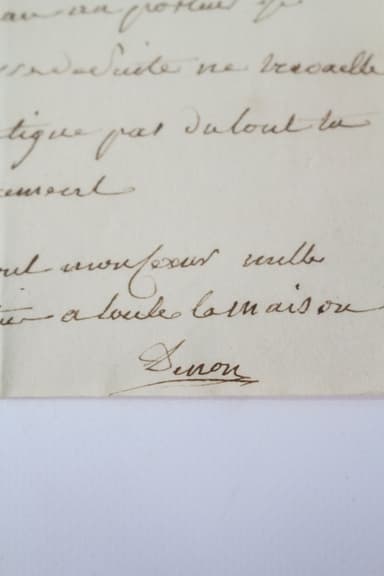 au porteur q
de suite ne travaille
tigue pas du tout la
ement
out monsieur mille
a toute la maison
Denon